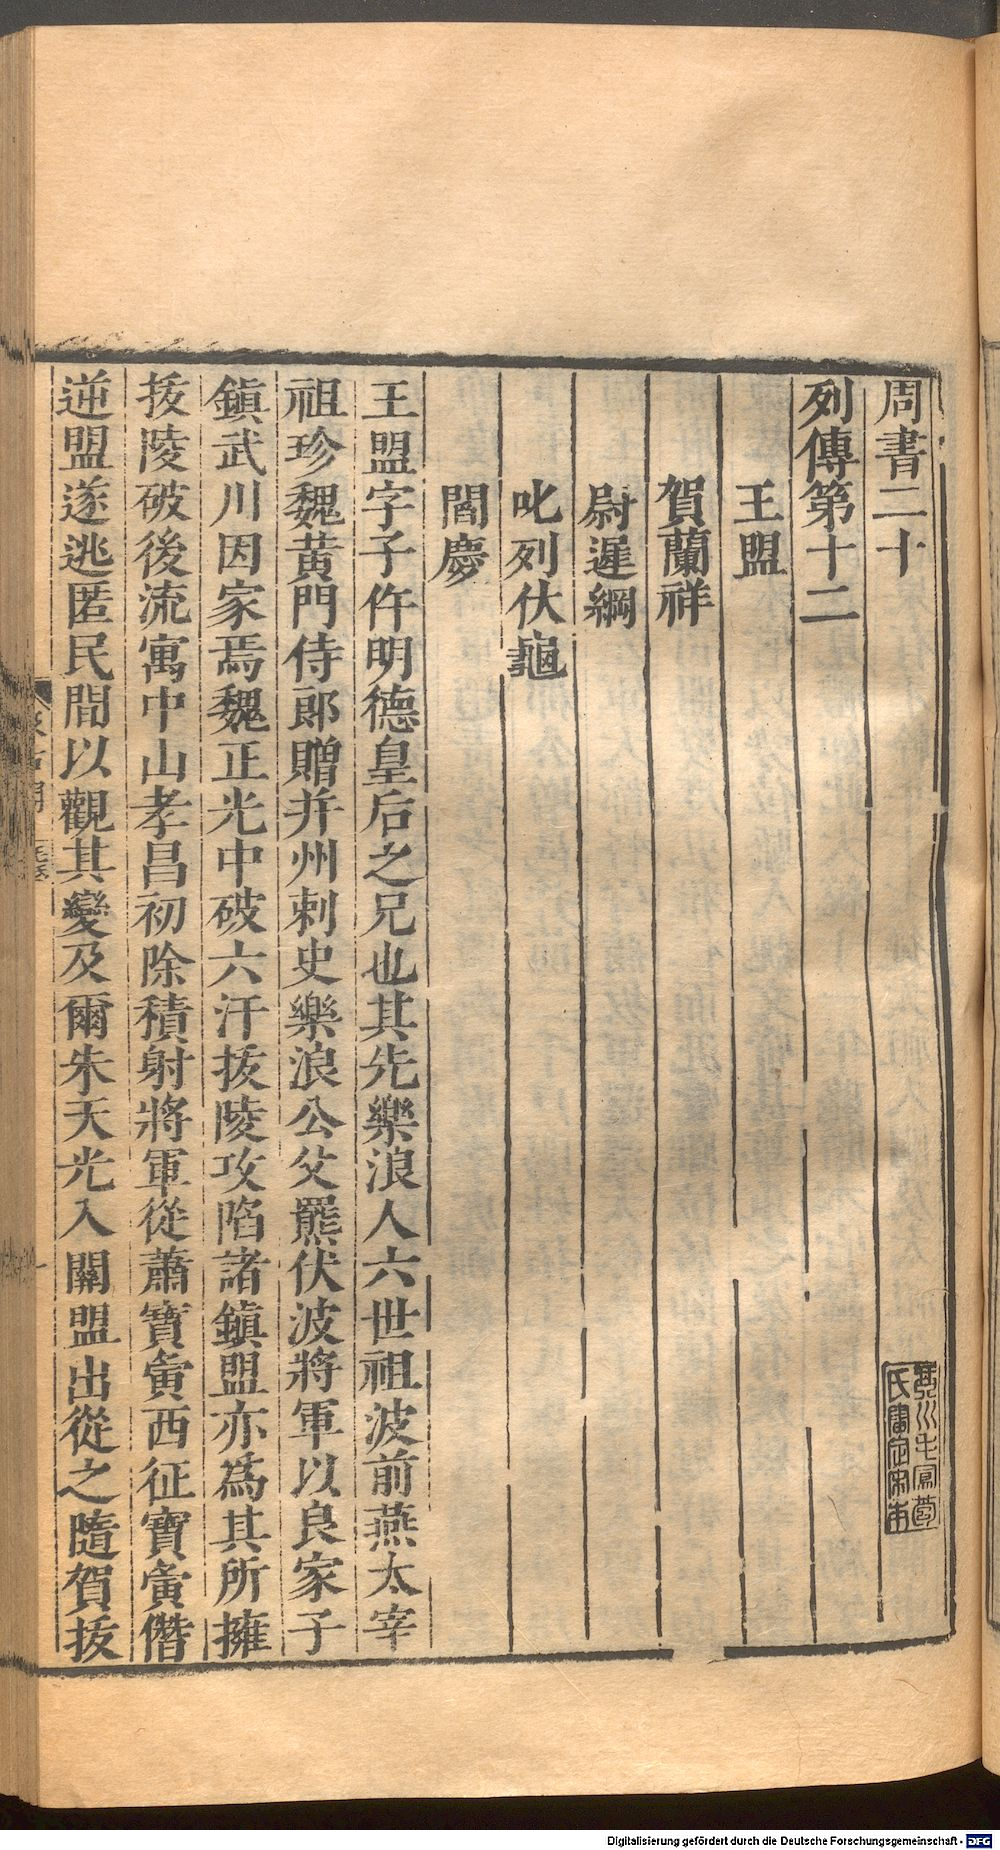 周書二十
列傳第十二
王盟
賀蘭祥
尉遲綱
叱列伏龜
閻慶
王盟字子仵明德皇后之兄也其先樂浪人六世祖波前燕太宰
祖珍魏黃門侍郎贈并州刺史樂浪公父羆伏波將軍以良家子
鎮武川因家焉魏正光中破六汗拔陵攻陷諸鎮盟亦為其所擁
拔陵破後流寓中山孝昌初除積射將軍從蕭寶夤西征寶夤僭
逆盟遂逃匿民間以觀其變及爾朱天光入關盟出從之隨賀拔
毛氏
宋本
Digitalisierung gefördert durch die Deutsche Forschungsgemeinschaft - DFG